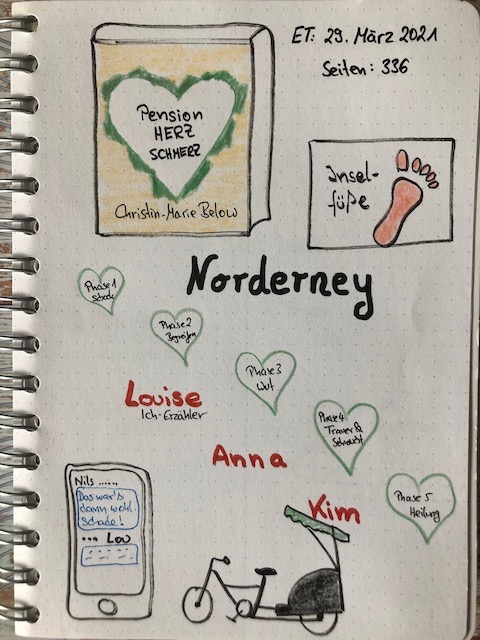 ET: 29. März 2021
Seiten: 336
Pension
HERZ
SCHMERZ
Christin-Marie Below
Insel-
füße
Norderney
Phase 1
Schock
Phase 2
Begreifen
Phase 3
Wut
Louise
Ich-Erzähler
Phase 4
Trauer &
Sehnsucht
Anna
Kim
Phase 5
Heilung
Nils ......
Das war's
dann wohl.
Schade!
... Lou